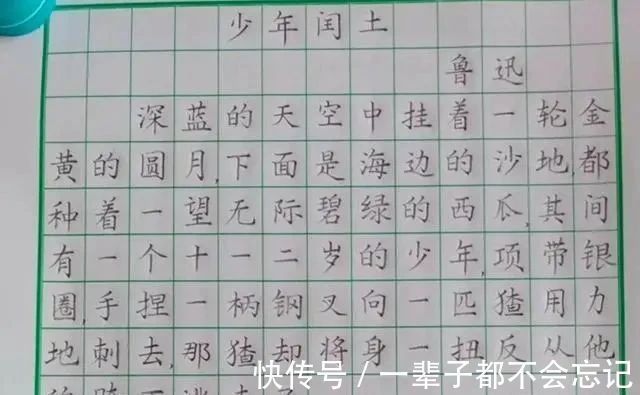 少年闰土
鲁迅
深蓝的天空中挂着一轮金
黄的圆月,下面是海边的沙地,都
种着一望无际碧绿的西瓜,其间
有一个十一二岁的少年,项带银
圈,手捏一柄钢叉向一匹猹用力
地刺去,那猹却将身一扭反从他
快传号 / 一辈子都不会忘记